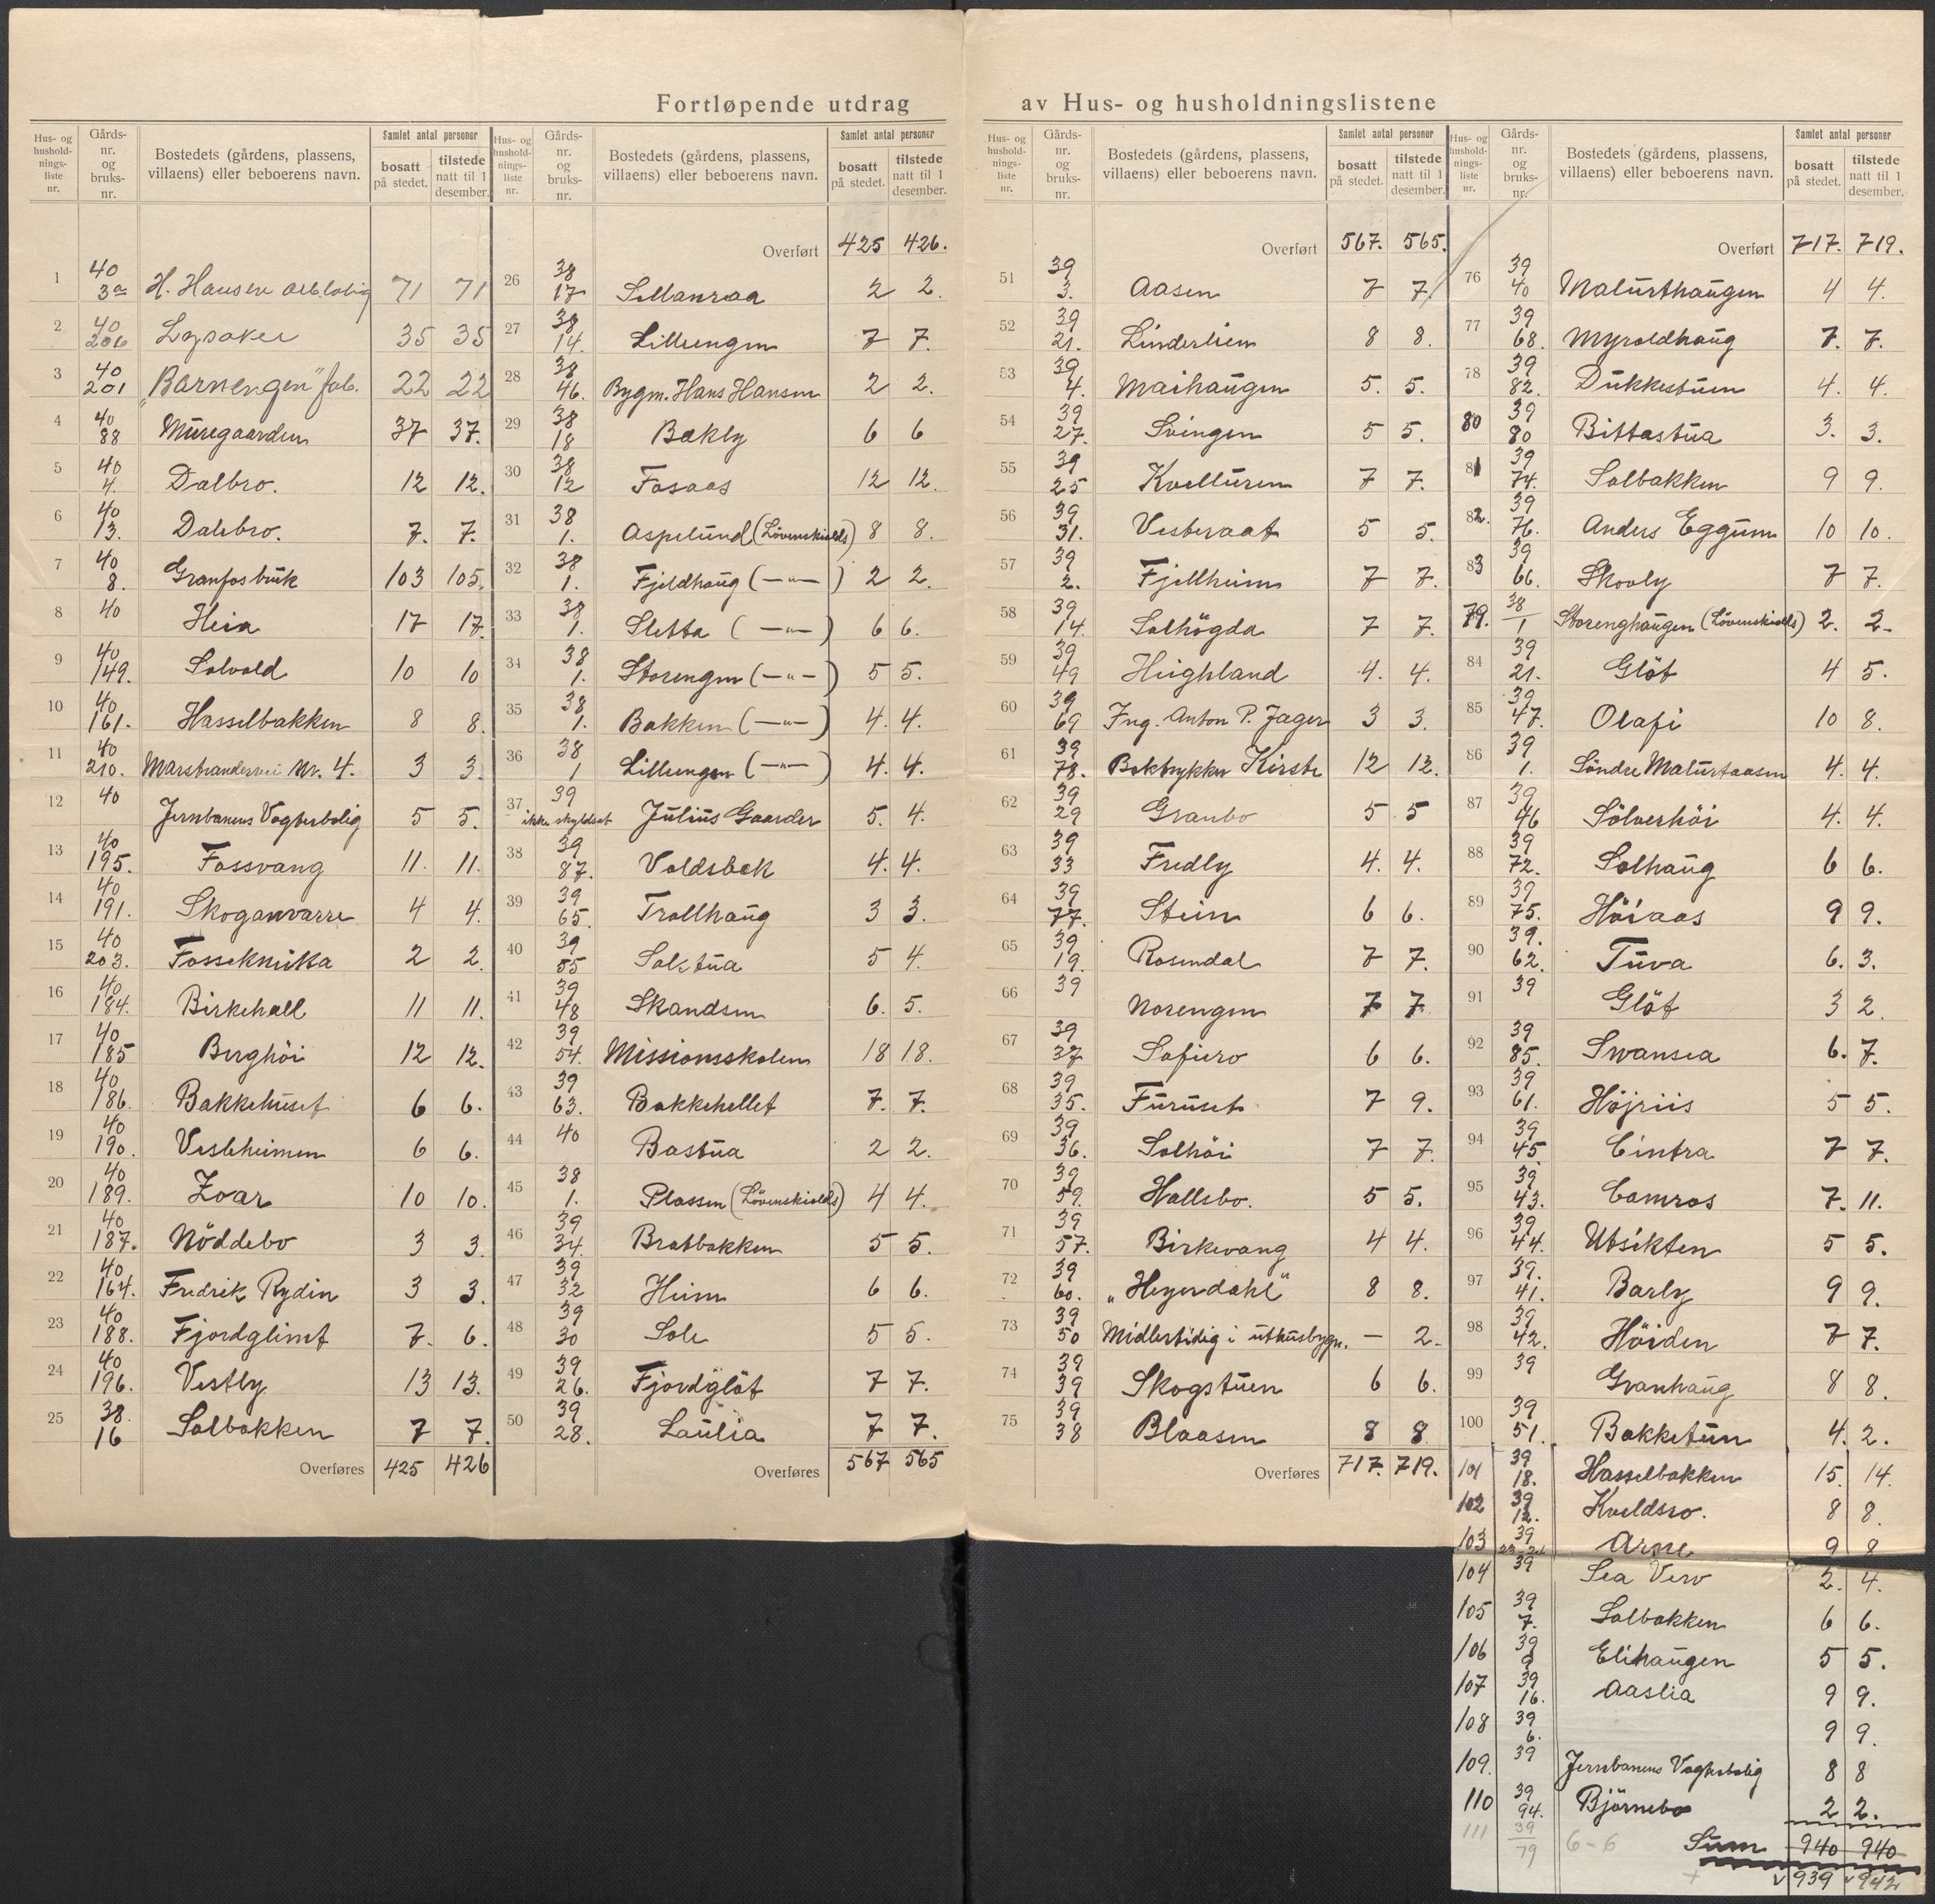 Fortløpende utdrag av Hus- og husholdningslistene
Hus- og hushold-nings-liste nr. | Gårds-nr. og bruks-nr. | Bostedets (gårdens, plassens, villaens) eller beboerens navn. | Samlet antal personer | bosatt på stedet. | tilstede natt til 1 desember.
1 40 3a H. Hansen 71 71
2 40 206 Lysaker 35 35
3 40 201 "Barnengen" fab. 22 22
4 40 88 Muregaarden 37 37.
5 40 4. Dalbro. 12 12.
6 40 13. Dalsbro. 7. 7.
7 40 8. Granfos bruk 103 105.
8 40 Heia 17 17.
9 40 149. Solvold 10 10
10 40 161. Hasselbakken 8 8.
11 40 210. Marstranderwei Nr. 4. 3 3.
12 40 Jernbanens Vogterbolig 5 5.
13 40 195. Fossvang 11. 11.
14 40 191. Skoganvarre 4 4.
15 40 203. Fosseknikka 2 2.
16 40 184. Birkehall 11 11.
17 40 185 Berghöi 12 12.
18 40 186. Bakkehuset 6 6.
19 40 190. Vesleheimen 6 6.
20 40 189. Zoar 10 10.
21 40 187. Nöddebo 3 3.
22 40 164. Fredrik Rydin 3 3.
23 40 188. Fjordglimt 7. 6.
24 40 196. Vestly 13 13.
25 38. 16 Solbakken 7 7.
Overføres 425 426
Hus- og hushold-nings-liste nr. | Gårds-nr. og bruks-nr. | Bostedets (gårdens, plassens, villaens) eller beboerens navn. | Samlet antal personer | bosatt på stedet. | tilstede natt til 1 desember.
Overført 425 426.
26 38 17 Sellanraa 2 2.
27 38 14. Lilleengen 7 7.
28 38 46. Bygm. Hans Hansen 2 2.
29 38 18 Bakly 6 6
30 38 12 Fosaas 12 12.
31 38 1. Aspelund (Lövenskiolds) 8 8.
32 38 1. Fjeldhaug (—"—) 2 2.
33 38 1. Sletta (—"—) 6 6.
34 38 1. Storengen (—"—) 5 5.
35 38 1. Bakken (—"—) 4. 4.
36 38 1 Lillengen (—"—) 4. 4.
37 39 ikke skyldsat Julius Gaarder 5. 4.
38 39 87. Voldsbek 4. 4.
39 39 65. Trollhaug 3 3.
40 39 55 Solstua 5 4.
41 39 48 Skandsen 6. 5.
42 39 54. Missionsskolen 18 18.
43 39 63. Bakkehellet 7. 7.
44 40 Bastua 2 2.
45 38 1. Plassen (Lövenskiolds) 4 4.
46 39 34. Bratbakken 5 5.
47 39 32 Heim 6 6.
48 39 30 Sole 5 5.
49 39 26. Fjordglöt 7 7.
50 39 28. Laulia 7 7.
Overføres 567 565
Hus- og hushold-nings-liste nr. | Gårds-nr. og bruks-nr. | Bostedets (gårdens, plassens, villaens) eller beboerens navn. | Samlet antal personer | bosatt på stedet. | tilstede natt til 1 desember.
Overført 567. 565.
51 39 3. Aasen 7 7.
52 39 21. Linderlien 8 8.
53 39 4. Maihaugen 5. 5.
54 39 27. Svingen 5 5.
55 39 25 Kvelturen 7 7.
56 39 31. Vesteraat 5 5.
57 39 2. Fjellheim 7 7.
58 39 14. Solhögda 7 7.
59 39 49 Heighland 4. 4.
60 39 69 Ing. Anton P. Jager 3 3.
61 39 78. Boktrykker Kirste 12 12.
62 39 29 Granbo 5 5
63 39 33 Fredly 4. 4.
64 39 77. Stein 6 6.
65 39 19. Rosendal 7 7.
66 39 Norengen 7 7.
67 39 37 Sofiero 6 6.
68 39 35. Furuset 7 9.
69 39 36. Solhöi 7 7.
70 39 59. Hallsbo. 5 5.
71 39 57. Birkevang 4 4.
72 39 60. "Heyerdahl" 8 8.
73 39 50 Midlertidig i uthusbygn. — 2.
74 39 39 Skogstuen 6 6.
75 39 38 Blaasen 8 8
Overføres 717. 719.
Hus- og hushold-nings-liste nr. | Gårds-nr. og bruks-nr. | Bostedets (gårdens, plassens, villaens) eller beboerens navn. | Samlet antal personer | bosatt på stedet. | tilstede natt til 1 desember.
Overført 717. 719.
76 39 40 Maturthaugen 4 4.
77 39 68. Myroldhaug 7. 7.
78 39 82. Dukkestuen 4. 4.
80 39 80 Bittastua 3. 3.
81 39 74. Solbakken 9 9.
82. 39 76. Anders Eggum 10 10.
83 39 66. Skovly 7 7.
79. 38 1 Storenghaugen (Lövenskiolds) 2. 2.
84 39 21. Glöt 4 5.
85 39 47. Olafi 10 8.
86 39 1. Söndre Maturtaasen 4. 4.
87 39 46 Sölverhöi 4. 4.
88 39 72. Solhaug 6 6.
89 39 75. Höiaas 9 9.
90 39. 62. Tuva 6. 3.
91 39 Glöt 3 2.
92 39 85. Swansea 6. 7.
93 39 61. Höjriis 5 5.
94 39 45 Cintra 7 7.
95 39 43. Camros 7. 11.
96 39 44. Utsikten 5 5.
97 39. 41. Barly 9 9.
98 39 42. Höiden 7 7.
99 39 Granhaug 8 8.
100 39 51. Bakketun 4. 2.
101 39 18. Hasselbakken 15 14.
102 39 12. Kveldsro. 8 8.
103 39 Arne 9 8
104 39 Sea View 2. 4.
105 39 7. Solbakken 6 6.
106 39 9 Elihaugen 5 5.
107 39 16. Aaslia 9 9.
108 39 6. 9 9.
109. 39 Jernbanens Vogterbolig 8 8
110 39 94. Björnebo 2 2.
111 39 79 6-6
Sum 940 940
939 942